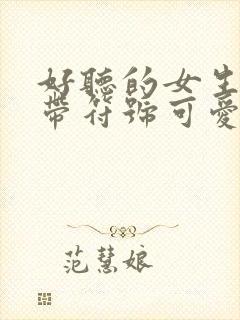 好聽的女生
帶符號可愛
范慧娘